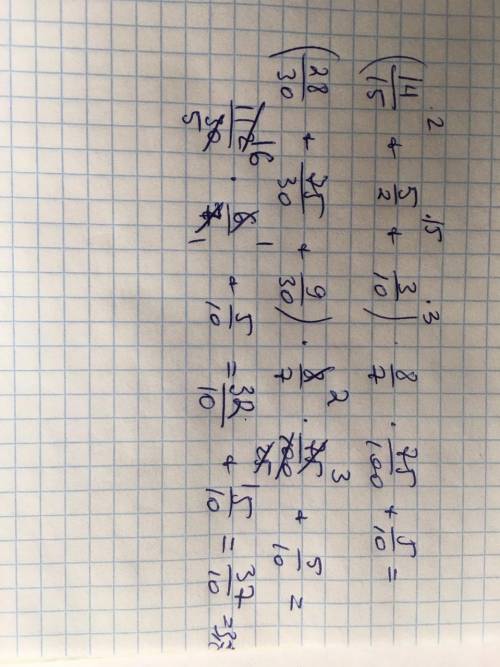 (14/15 ·2 + 5/2 ·15 + 3/10 ·3) · 8/7 · 75/100 + 5/10 =
(28/30 + 75/30 + 9/30) · 8/7 2 · 75/100 3 25 + 5/10 =
112/30 16 5 · 6/7 1 1 + 5/10 = 32/10 + 5/10 = 37/10